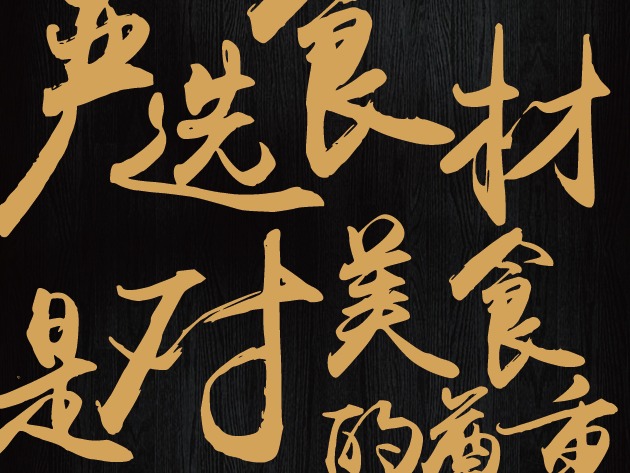 严选食材
是对美食
的尊重